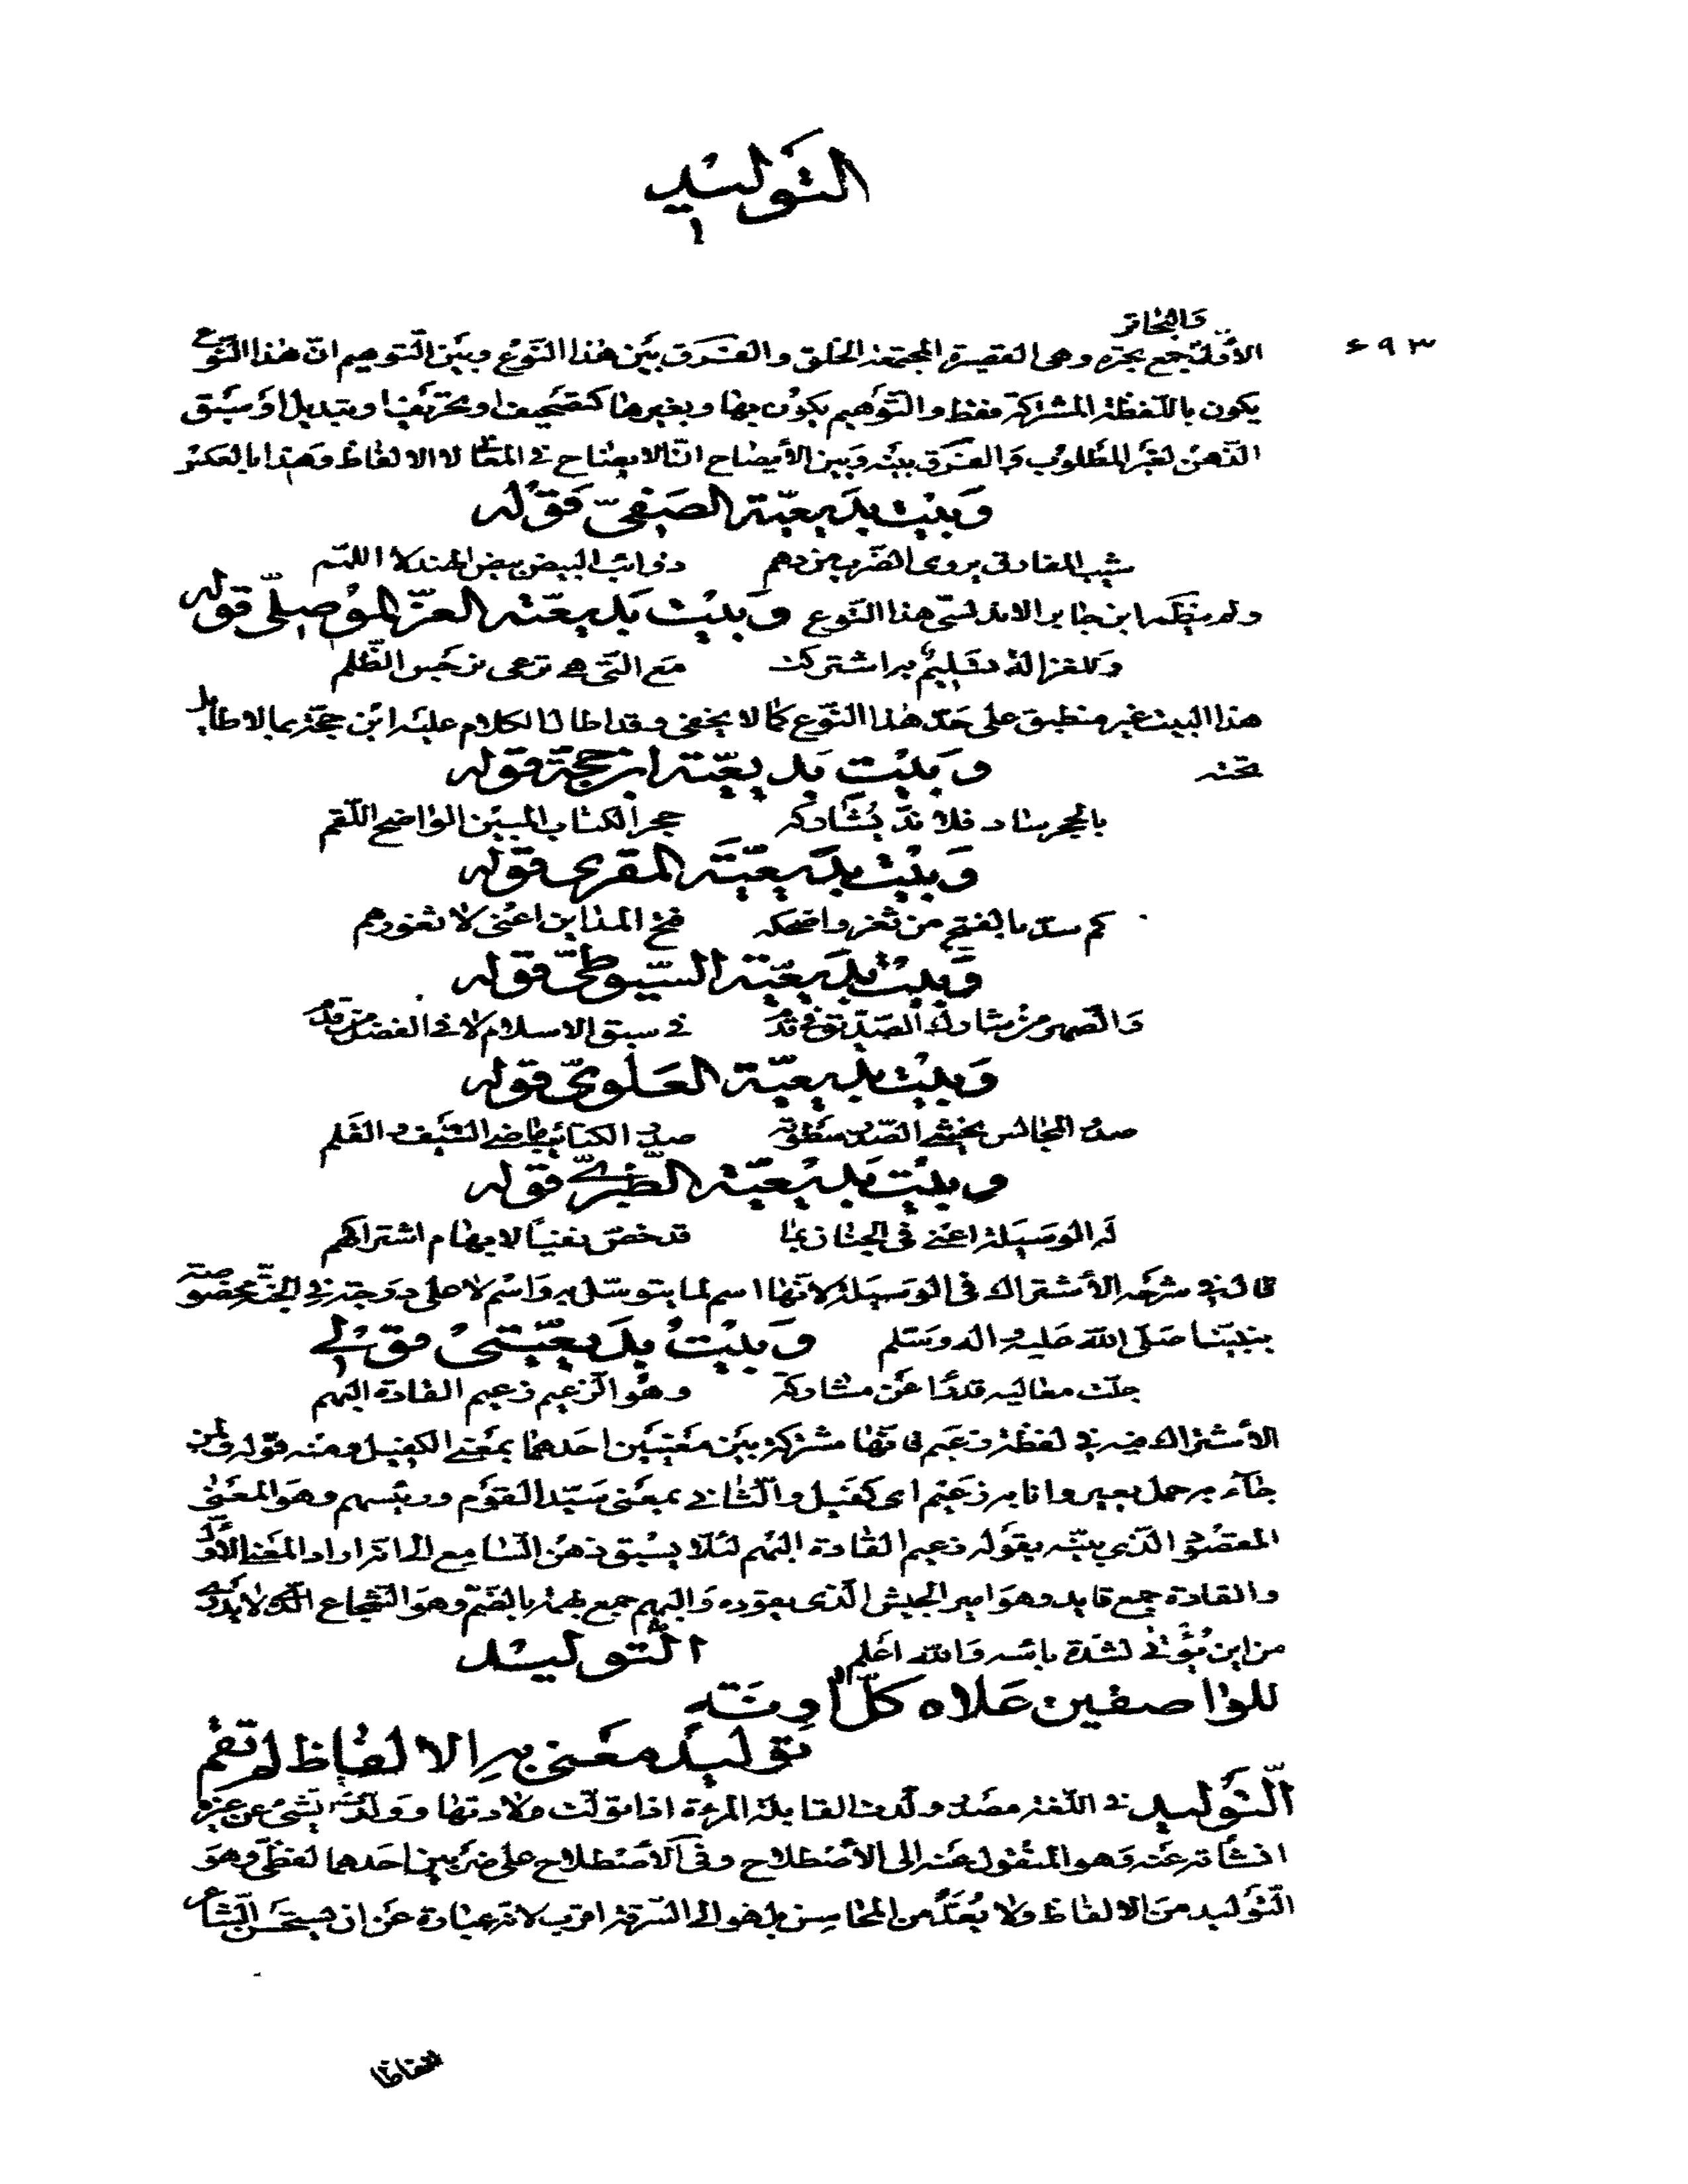 التوليد
٦٩٣
والبحاتر
الأول جمع بحتره وهى القصيرة المجتمعة الخلق والفرق بين هذا النوع وبين التوهيم ان هذا النوع
يكون باللفظة المشتركة فقط والتوهيم يكون بها وبغيرها كتصحيف او تحريف او تبديل او سبق
الذهن لغير المطلوب والفرق بينه وبين الأيضاح ان الايضاح فى المعانى لا الالفاظ وهذا بالعكس
وبيت بديعية الصفى قوله
شيب المفارق يروى الضرب من دمهم ذوائب البيض بيض الهند لا اللمم
ولم ينظم ابن جابر الاندلسى هذا النوع وبيت بديعية العز الموصلى قوله
وللغزالة تسليم به اشتركت مع التى هى ترعى نرجس الظلم
هذا البيت غير منطبق على حد هذا النوع كما لا يخفى وقد اطال الكلام عليه ابن حجة بما لا طائل
تحته وبيت بديعية ابن حجة قوله
بالحجر ساد فلا ند يشاركه حجر الكتاب المبين الواضح اللقم
وبيت بديعية المقرى قوله
كم سد بالفتح من ثغر واضحكه فتح المداين اعنى لا ثغورهم
وبيت بديعية السيوطى قوله
والصهر من شارك الصديق فى قدم فى سبق الاسلام لا فى الفضل من قدم
وبيت بديعية العلوى قوله
صدر المجالس يخشى الصدر سطوته صدر الكتائب ماضى السيف والقلم
وبيت بديعية الطبرى قوله
له الوسيلة اعنى فى الجنان بما قد خص نفيا لابهام اشتراكهم
قال فى شرحه الأشتراك فى الوسيلة لأنها اسم لما يتوسل به واسم لاعلى درجة فى الجنة مخصوصة
بنبينا صلى الله عليه واله وسلم وبيت بديعيتى قولى
جلت معاليه قدرا عن مشاركة وهو الزعيم زعيم القادة البهم
الأشتراك فيه فى لفظة زعيم فانها مشتركة بين معنيين احدهما بمعنى الكفيل ومنه قوله ولمن
جاء به حمل بعير وانا به زعيم اى كفيل والثانى بمعنى سيد القوم ورئيسهم وهو المعنى
المقصود الذى بينه بقوله زعيم القادة البهم لئلا يسبق ذهن السامع الى انه اراد المعنى الأول
والقادة جمع قايد وهو امير الجيش الذى يقوده والبهم جمع بهمة بالضم وهو الشجاع الذى لا يدرى
من اين يؤتى لشدة باسه والله اعلم التوليد
للواصفين علاه كل اونة
توليد معنى به الالفاظ لم تقم
التوليد فى اللغة مصدر ولدت القابلة المرءة اذا تولت ولادتها وولدت الشىء عن غيره
انشاته عنه وهو المنقول عنه الى الأصطلاح وفى الأصطلاح على ضربين احدهما لفظى وهو
التوليد من الالفاظ ولا يعد من المحاسن بل هو الى السرقة اقرب لانه عبارة عن ان يستحسن الشاعر
الفاظا